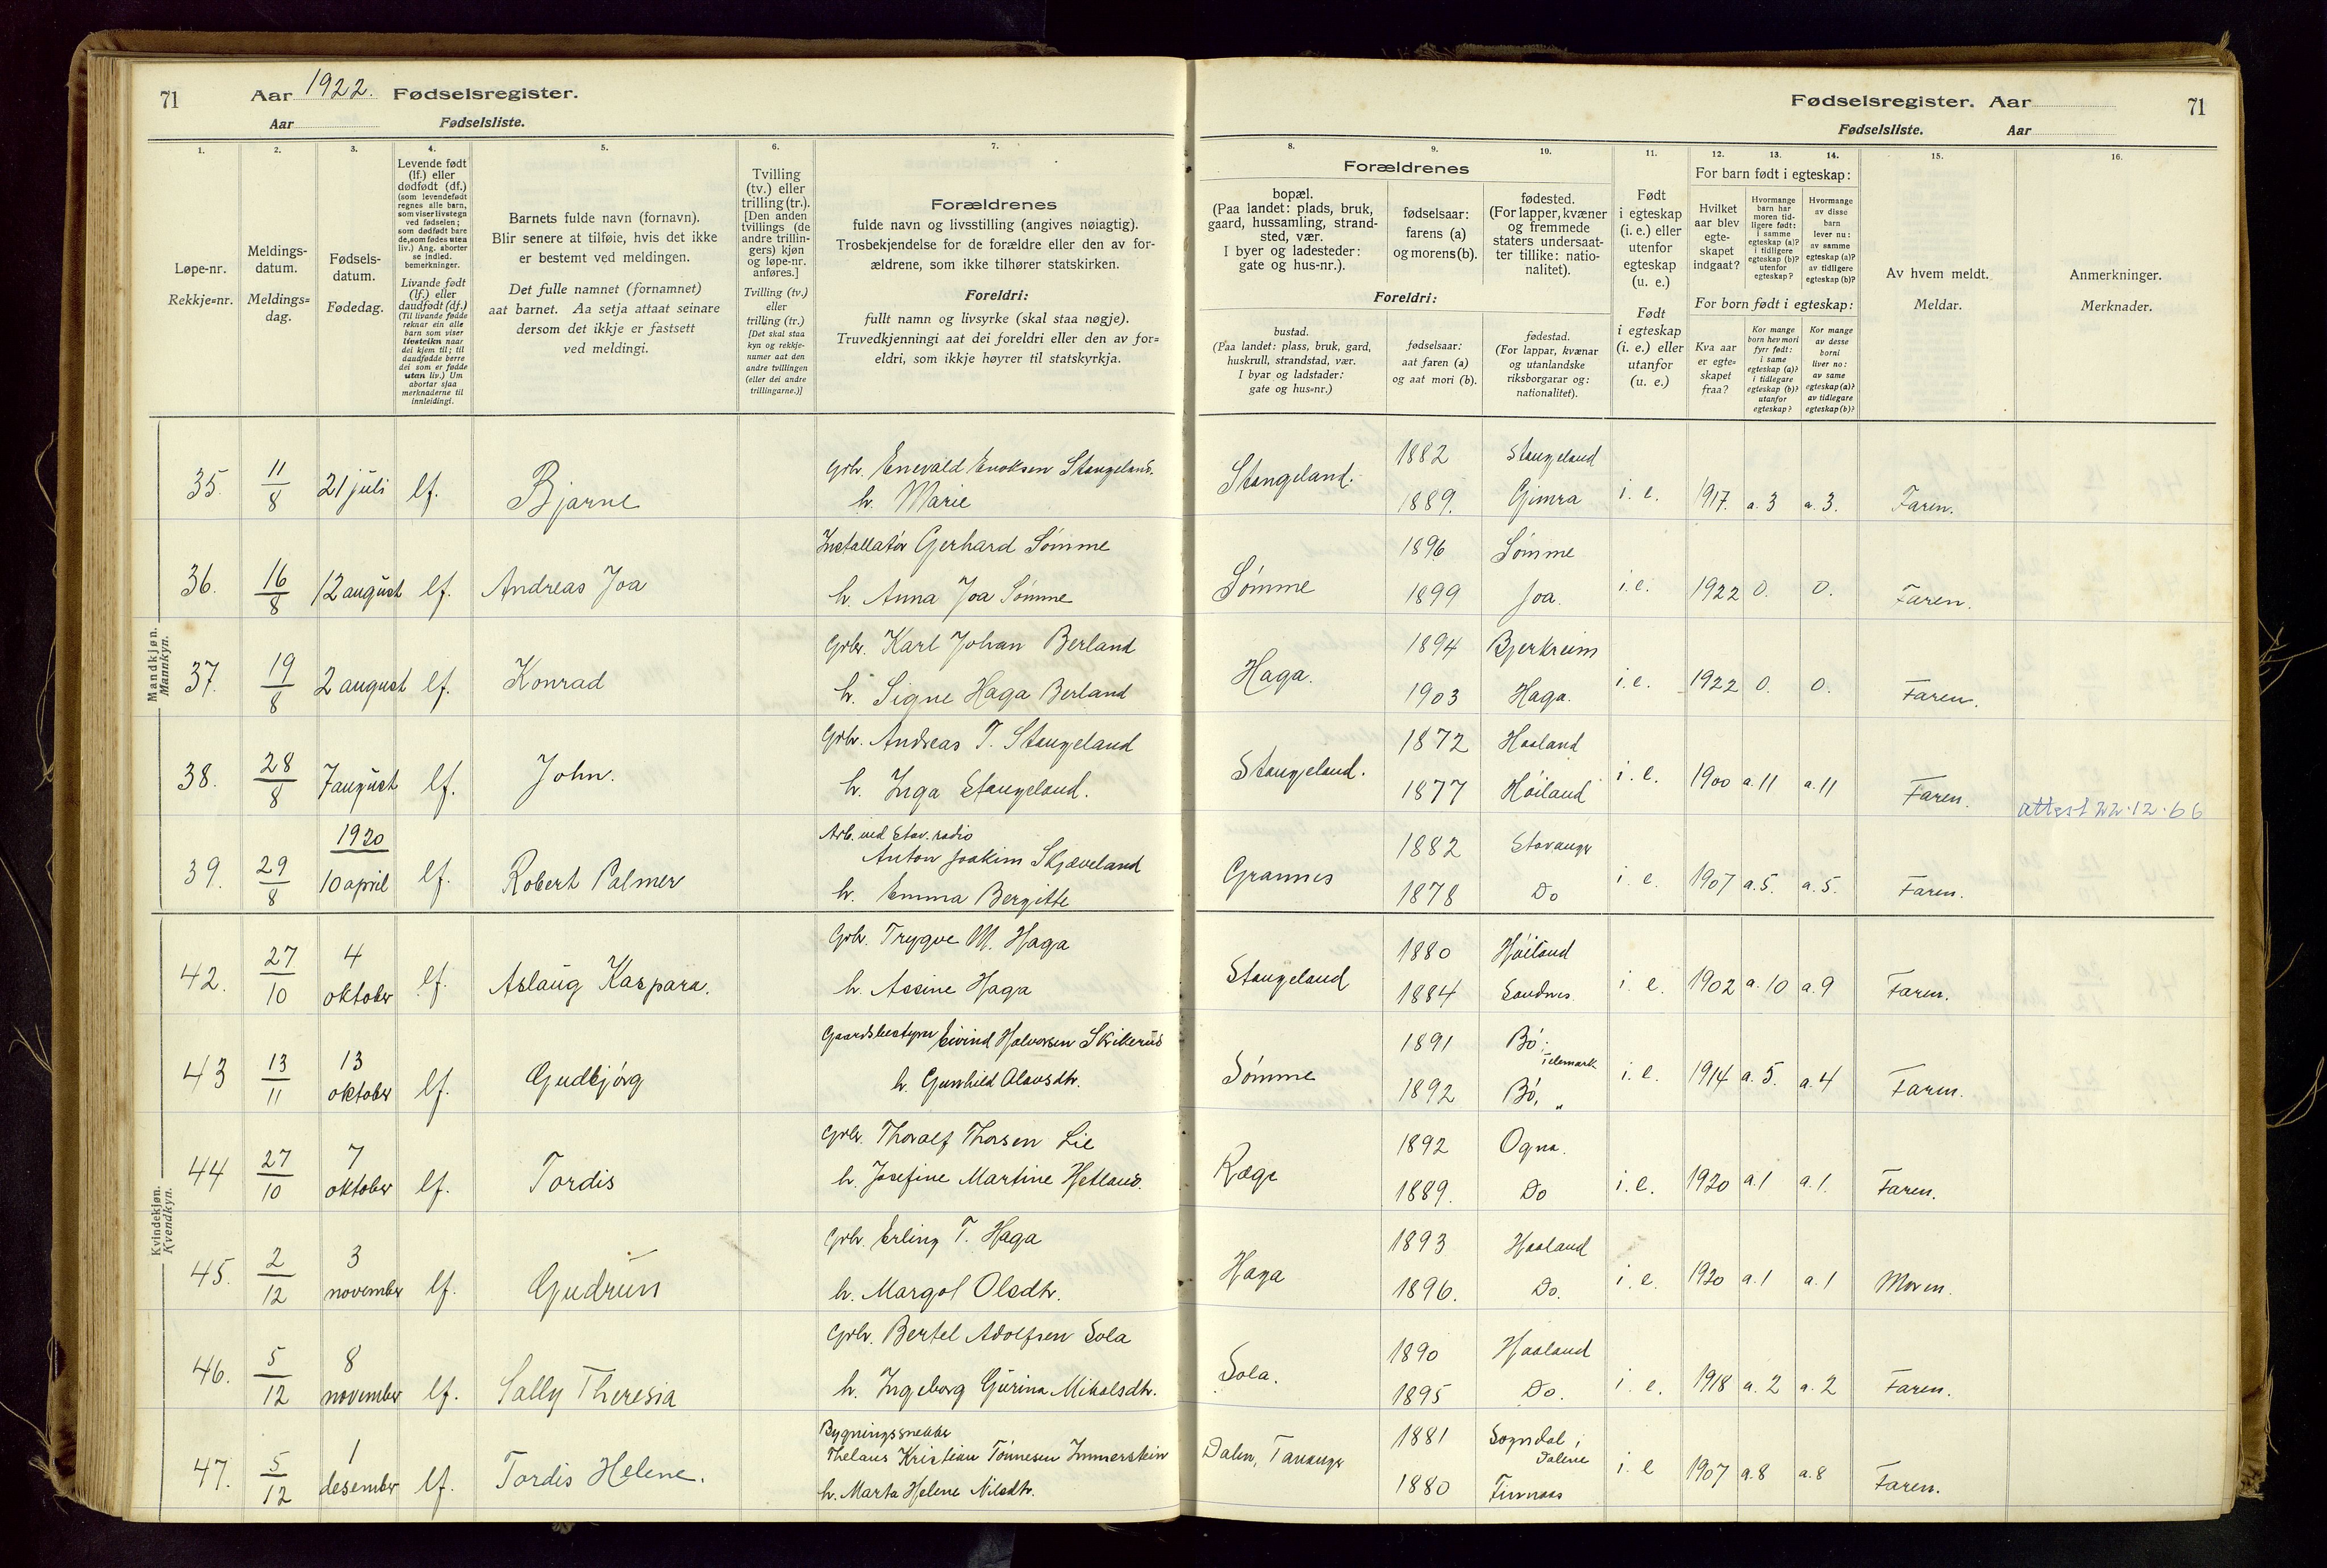 71 Aar 1922. Fødselsregister.
Aar Fødselsliste.
Fødselsregister. Aar 71
Fødselsliste. Aar
1. 2. 3. 4. 5. 6. 7.
Løpe-nr.
Rekkje=nr.
Meldings-
datum.
Meldings=
dag.
Fødsels-
datum.
Fødedag.
Levende født
(lf.) eller
dødfødt (df.)
(som levendefødt
regnes alle barn,
som viser livstegn
ved fødselen;
som dødfødt bare
de, som fødes uten
liv.) Ang. aborter
se indled.
bemerkninger.
Livande født
(lf.) eller
daudfødt (df.)
(Til livande fødde
reknar ein alle
barn som viser
livsteikn naar
dei kjem til; til
daudfødde berre
dei som er fødde
utan liv.) Um
abortar sjaa
merknaderne til
innleidingi.
Barnets fulde navn (fornavn).
Blir senere at tilføie, hvis det ikke
er bestemt ved meldingen.
Det fulle namnet (fornamnet)
aat barnet. Aa setja attaat seinare
dersom det ikkje er fastsett
ved meldingi.
Tvilling
(tv.) eller
trilling (tr.).
[Den anden
tvillings (de
andre trillin-
gers) kjøn
og løpe-nr.
anføres.]
Tvilling (tv.)
eller
trilling (tr.)
[Det skal staa
kyn og rekkje-
numer aat den
andre tvillingen
(eller dei andre
trillingarne.)]
Forældrenes
fulde navn og livsstilling (angives nøiagtig).
Trosbekjendelse for de forældre eller den av for-
ældrene, som ikke tilhører statskirken.
Foreldri:
fullt namn og livsyrke (skal staa nøgje).
Truvedkjenningi aat dei foreldri eller den av for=
eldri, som ikkje høyrer til statskyrkja.
8. 9. 10. 11. 12. 13. 14. 15. 16.
Forældrenes
bopæl.
(Paa landet: plads, bruk,
gaard, hussamling, strand-
sted, vær.
I byer og ladesteder:
gate og hus-nr.).
fødselsaar:
farens (a)
og morens (b).
fødested.
(For lapper, kvæner
og fremmede
staters undersaat-
ter tillike: natio-
nalitet).
Foreldri:
bustad.
(Paa landet: plass, bruk, gard,
huskrull, strandstad, vær.
I byar og ladstader:
gate og hus=nr.)
fødselsaar:
aat faren (a)
og aat mori (b).
fødestad.
(For lappar, kvænar
og utanlandske
riksborgarar og:
nationalitet).
Født
i egteskap
(i. e.) eller
utenfor
egteskap
(u. e.)
Født
i egteskap
(i. e.) eller
utanfor
(u. e.)
For barn født i egteskap:
Hvilket
aar blev
egte-
skapet
indgaat?
Hvormange
barn har
moren tid-
ligere født:
i samme
egteskap (a)?
i tidligere
egteskap (b)?
utenfor
egteskap?
Hvormange
av disse
barn
lever nu:
av samme
egteskap (a)?
av tidligere
egteskap (b)?
For born født i egteskap:
Kva aar
er egte=
skapet
fraa?
Kor mange
born hev mori
fyrr født:
i same
egteskap (a)?
i tidlegare
egteskap (b)?
utanfor
egteskap?
Kor mange
av desse
borni
liver no:
av same
egteskap (a)?
av tidlegare
egteskap (b)?
Av hvem meldt.
Meldar.
Anmerkninger.
Merknader.
Mandkjøn.
Mannkyn.
35. 11/8 21 juli lf. Bjarne Grbr. Enevald Enoksen Stangeland. h. Marie Stangeland. 1882 Stangeland 1889. Gimra i. e. 1917. a. 3 a. 3. Faren.
36. 16/8 12 august lf. Andreas Joa Installatør Gerhard Sømme h. Anna Joa Sømme Sømme 1896 Sømme 1899 Joa. i. e. 1922 0. 0. Faren.
37. 19/8 2 august lf. Konrad Grbr. Karl Johan Berland h. Signe Haga Berland Haga. 1894 Bjerkreim 1903 Haga. i. e. 1922 0. 0. Faren.
38. 28/8 7 august lf. John. Grbr. Andreas T. Stangeland h. Inga Stangeland. Stangeland. 1872 Haaland 1877 Høiland i. e. 1900 a. 11 a. 11 Faren. attest 22.12.66
39. 29/8 1920 10 april lf. Robert Palmer Arb. ved Stav. radio Anton Joakim Skjæveland h. Emma Bergitte Grannes 1882 Stavanger 1878 Do i. e. 1907 a. 5. a. 5. Faren.
Kvindekjøn.
Kvendkyn.
42. 27/10 4 oktober lf. Aslaug Kaspara. Grbr. Trygve M. Haga h. Assine Haga Stangeland 1880 Høiland 1884 Sandnes i. e. 1902 a. 10 a. 9 Faren.
43 13/11 13 oktober lf. Gudbjørg Gaardsbestyrer Eivind Halvorsen Skikerud h. Gunhild Olavsdtr. Sømme 1891 Bø, Telemark 1892 Bø, " i. e. 1914 a. 5. a. 4 Faren.
44 27/10 7 oktober lf. Tordis Grbr. Thoralf Thorsen Lie h. Josefine Martine Hetland. Ræge 1892 Ogna. 1889. Do i. e. 1920 a. 1 a. 1. Faren.
45. 2/12 3 november lf. Gudrun Grbr. Erling T. Haga h. Margot Olsdtr. Haga 1893 Haaland 1896. Do. i. e. 1920 a. 1 a. 1 Moren.
46. 5/12 8 november lf. Sally Theresia Grbr. Bertel Adolfsen Sola h. Ingeborg Gurina Mikalsdtr. Sola. 1890 Haaland 1895 Do. i. e. 1918 a. 2 a. 2 Faren.
47. 5/12 1 desember lf. Tordis Helene. Bygningssnekker Thelaus Kristian Tønnesen Immerstein h. Marta Helene Nilsdtr. Dalen, Tananger 1881 Sogndal i Dalene 1880 Finnaas i. e 1907 a. 8 a. 8 Faren.